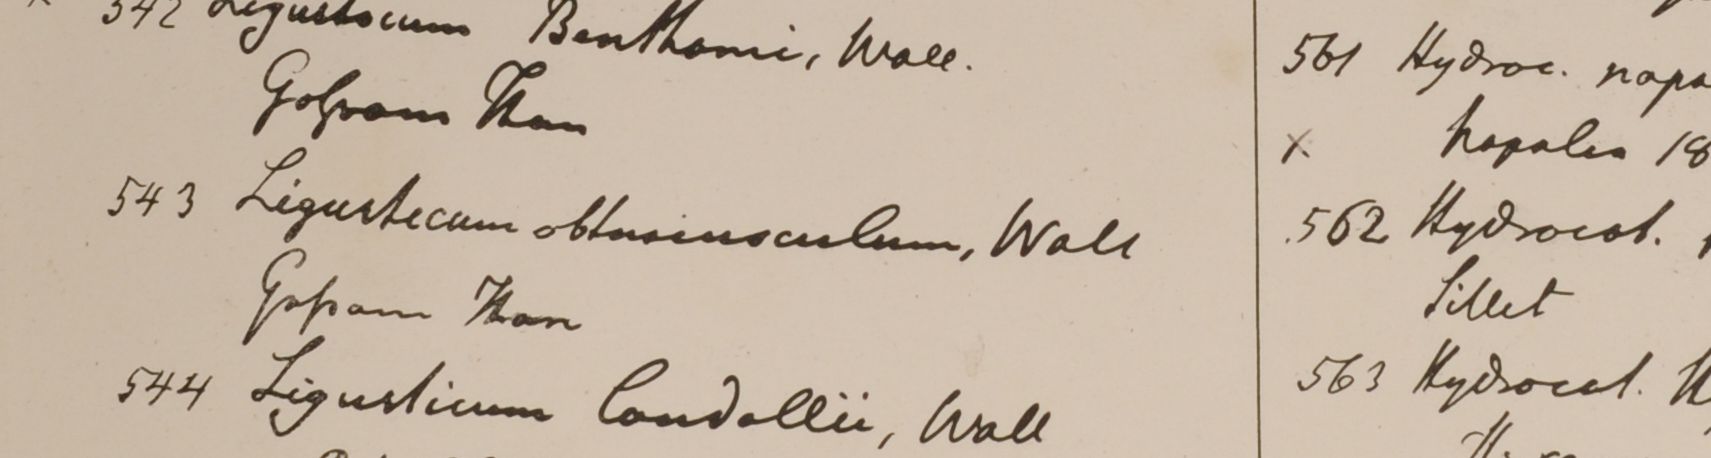 542 Ligusticum Benthami, Wall.
Gossam Than
543 Ligustecum obtusiusculum, Wall
Gossam Than
544 Ligusticum Candollii, Wall
561 Hydroc. napa
x Napalia 18
562 Hydrocot.
Sillet
563 Hydrocot.